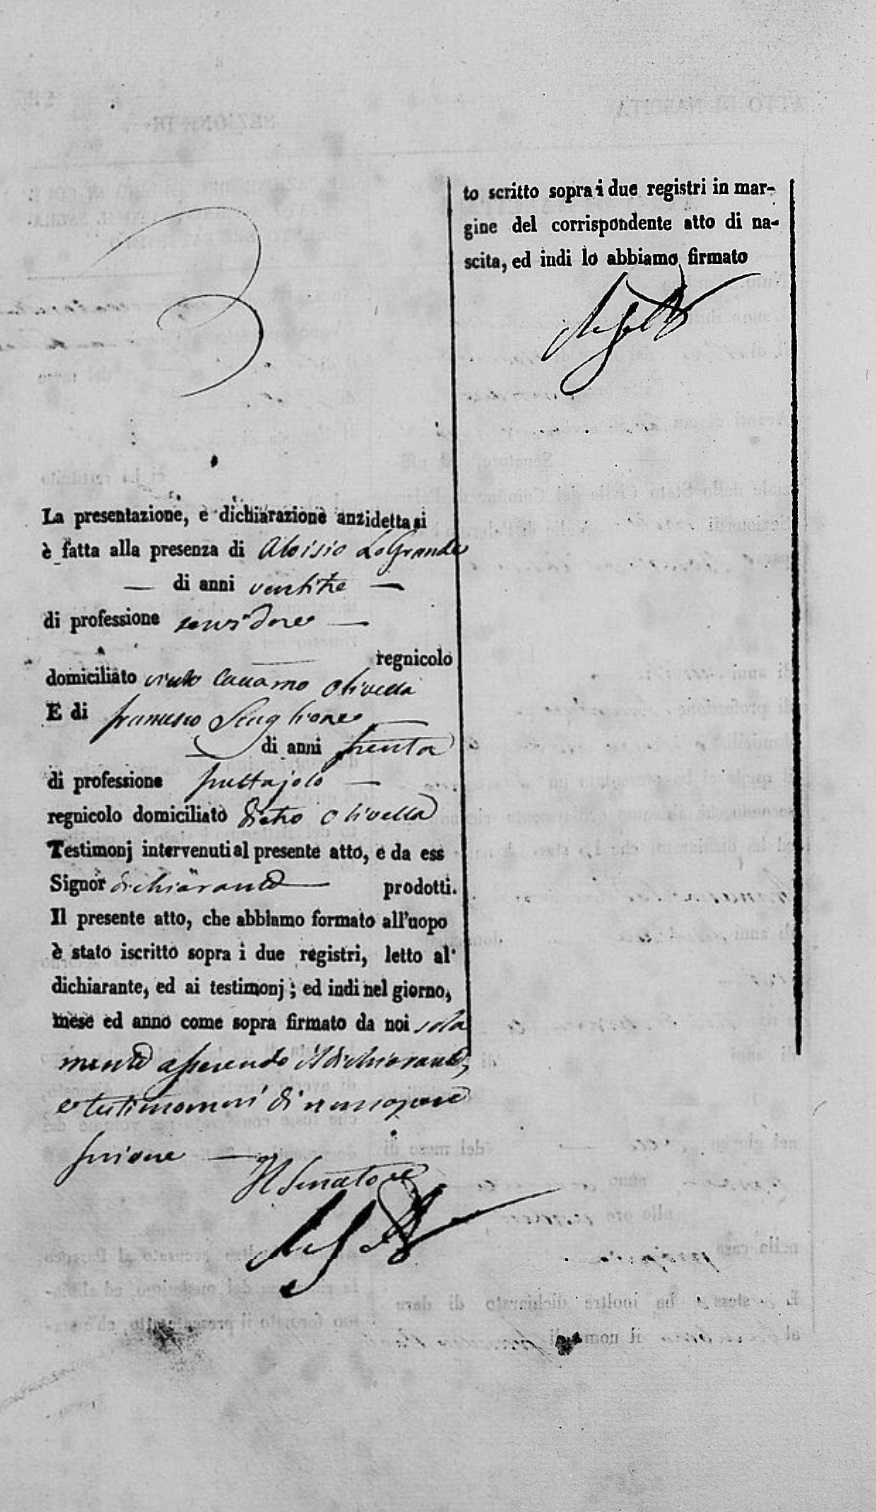 La presentazione, e dichiarazione anzidetta si
è fatta alla presenza di Aloisio Lo Grande
— di anni ventitre —
di professione servidore —
regnicolo
domiciliato Olivella
E di Francesco Scaglione
di anni trenta
di professione fruttajolo —
regnicolo domiciliato dietro Olivella
Testimonj intervenuti al presente atto, e da ess
Signor dichiarante — prodotti.
Il presente atto, che abbiamo formato all'uopo
è stato iscritto sopra i due registri, letto al
dichiarante, ed ai testimonj; ed indi nel giorno,
mese ed anno come sopra firmato da noi sola
mente asserendo il dichiarante,
e testimonii di non sapere
scrivere —
Il Senatore
to scritto sopra i due registri in mar-
gine del corrispondente atto di na-
scita, ed indi lo abbiamo firmato